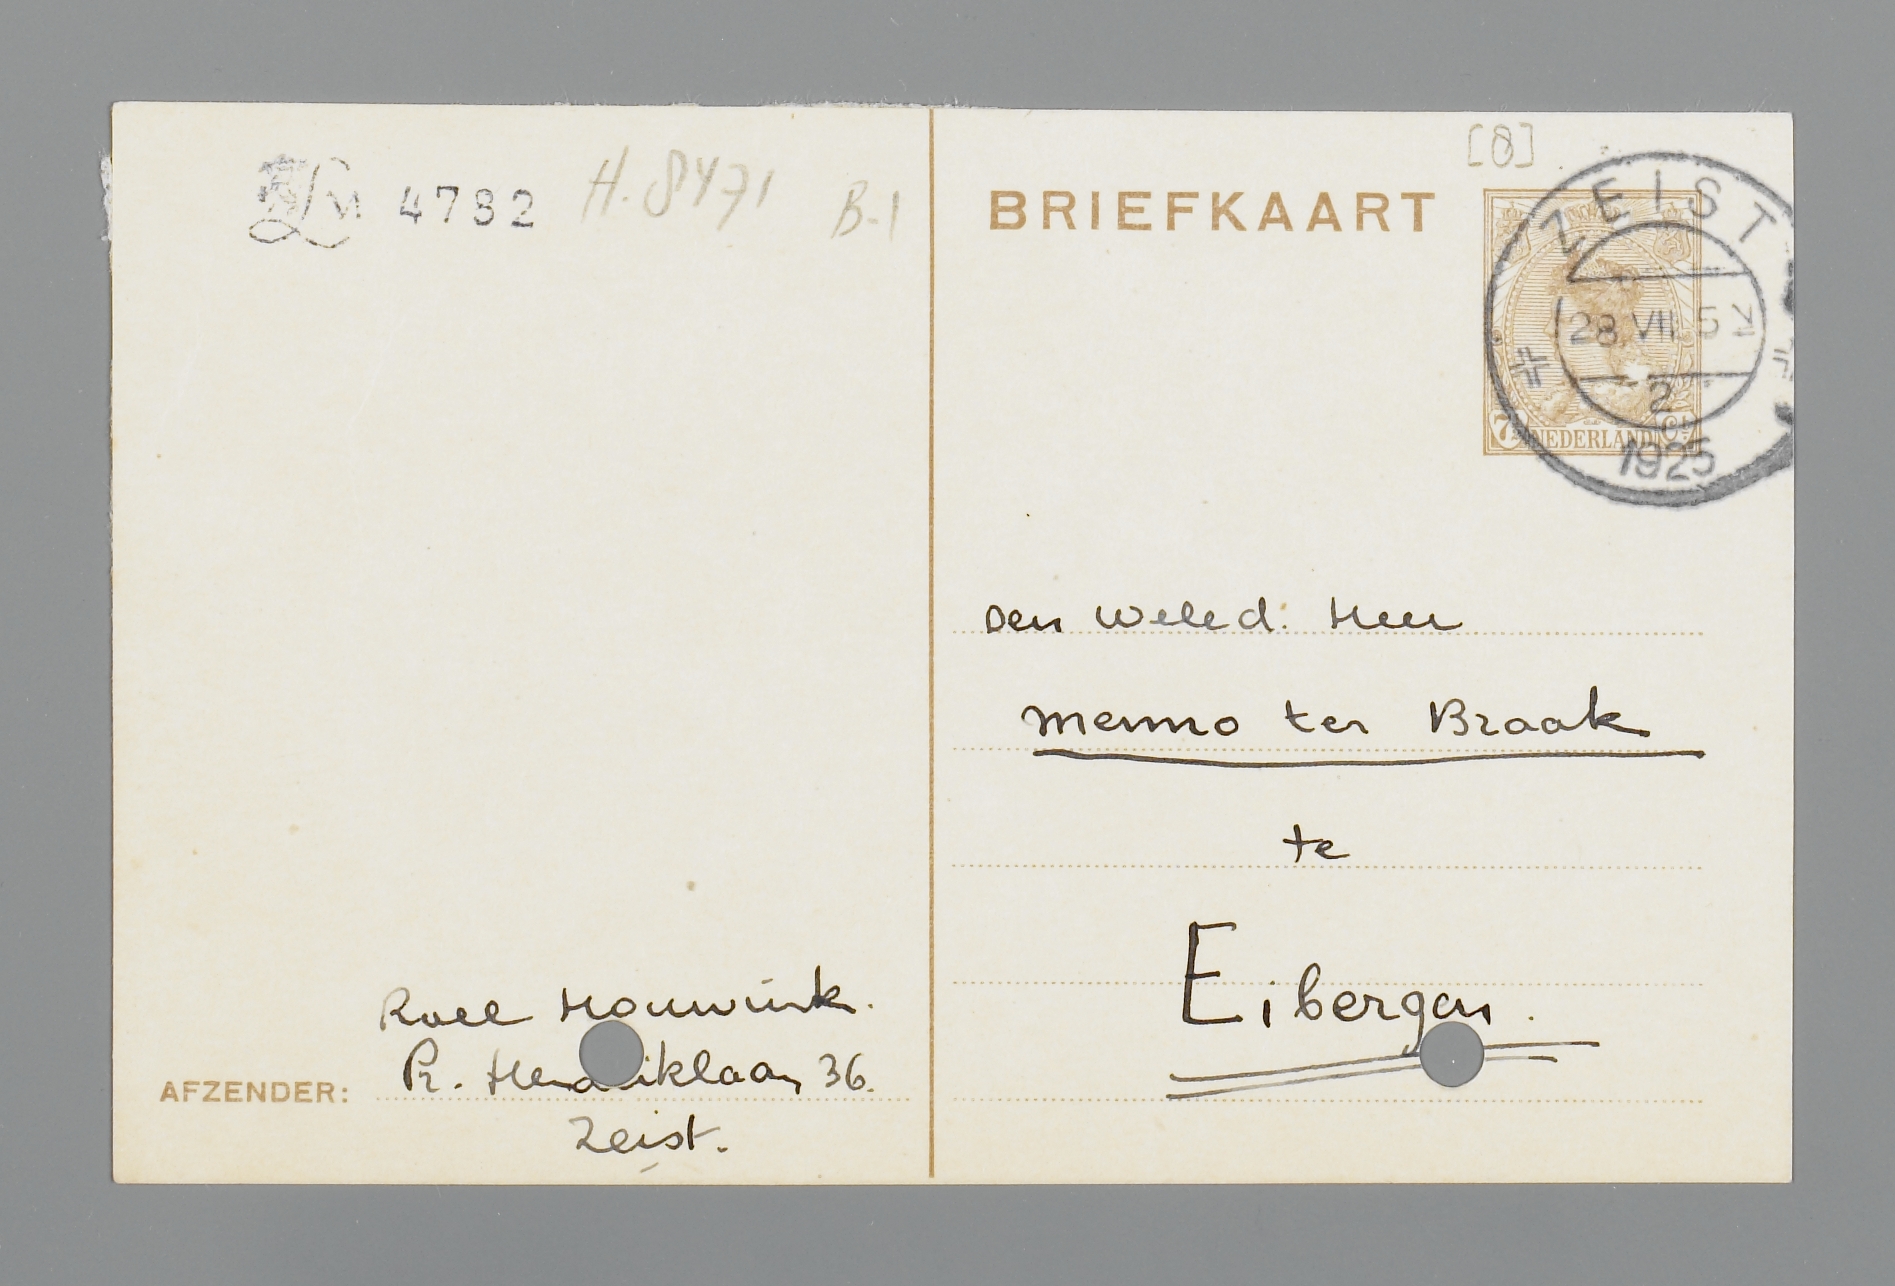 LM 4782 H.8471 B-1
[8]
BRIEFKAART
ZEIST
28.VII 5 N
2
1925
7½ NEDERLAND Ct
Den Weled. Heer
Menno ter Braak
te
Eibergen.
Roel Houwink.
AFZENDER: Pr. Hendriklaan 36.
Zeist.